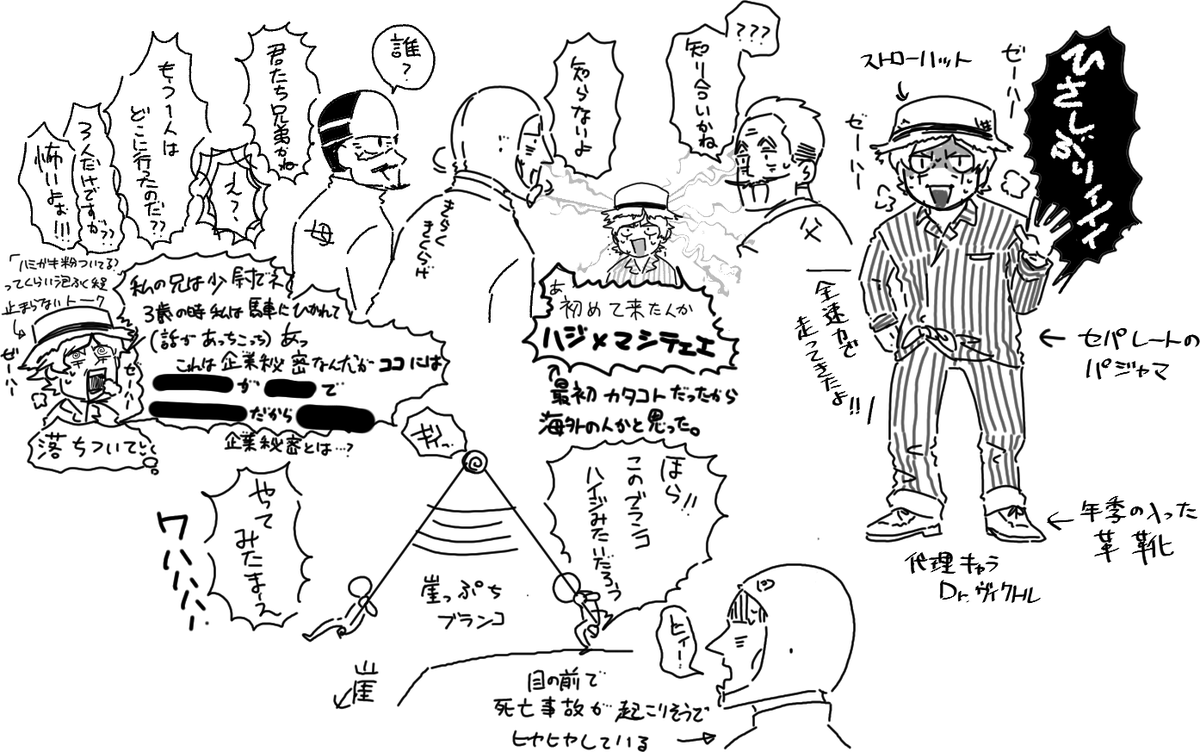 ひさしぶりィイイ
ゼーハー
ストローハット
ゼーハー
全速力で
走ってきたよ!!
セパレートの
パジャマ
年季の入った
革靴
代理キャラ
Dr.ヴィクトル
???
知り合いかね
父
知らないよ
きらく
きくらげ
誰?
母
あ
初めて来たんか
ハジメマシテェエ
最初カタコトだったから
海外の人かと思った。
君たち兄弟かね
え?
もう1人は
どこに行ったのだ??
3人だけですが??
怖いよぉ!!!
「ハミガキ粉ついてる?
ってくらい泡ふく程
止まらないトーク
ゼーハー
ゼーハー
私の兄は少尉でネ
3歳の時私は馬車にひかれて
(話があっちこっち)あっ
これは企業秘密なんだがココには
が で
だから
企業秘密とは…?
落ちついて
ほら!!
このブランコ
ハイジみたいだろう
やって
みたまえ
ワハハハハ
崖っぷち
ブランコ
崖
ヒィー
目の前で
死亡事故が起こりそうで
ヒヤヒヤしている